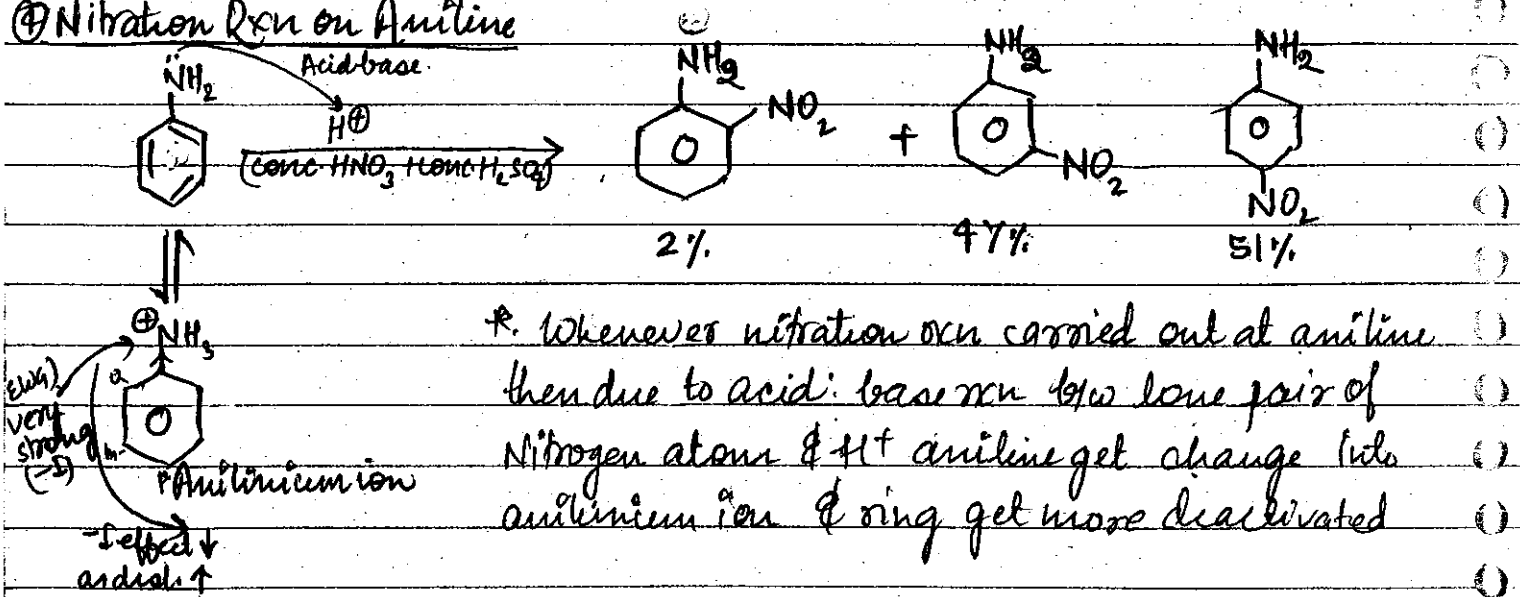 ⊕ Nitration Rxn on Aniline
N̈H₂
Acid-base.
H⊕
(conc. HNO₃ + conc. H₂SO₄)
NH₂
NO₂
2%.
+
NH₂
NO₂
47%.
NH₂
NO₂
51%.
⊕NH₃
EWG)
very
strong
(-I)
o
m-
p
Anilinicum ion
-I effect ↓
as dist. ↑
*. Whenever nitration rxn carried out at aniline
then due to acid: base rxn b/w lone pair of
Nitrogen atom & H⁺ aniline get change into
anilinium ion & ring get more deactivated